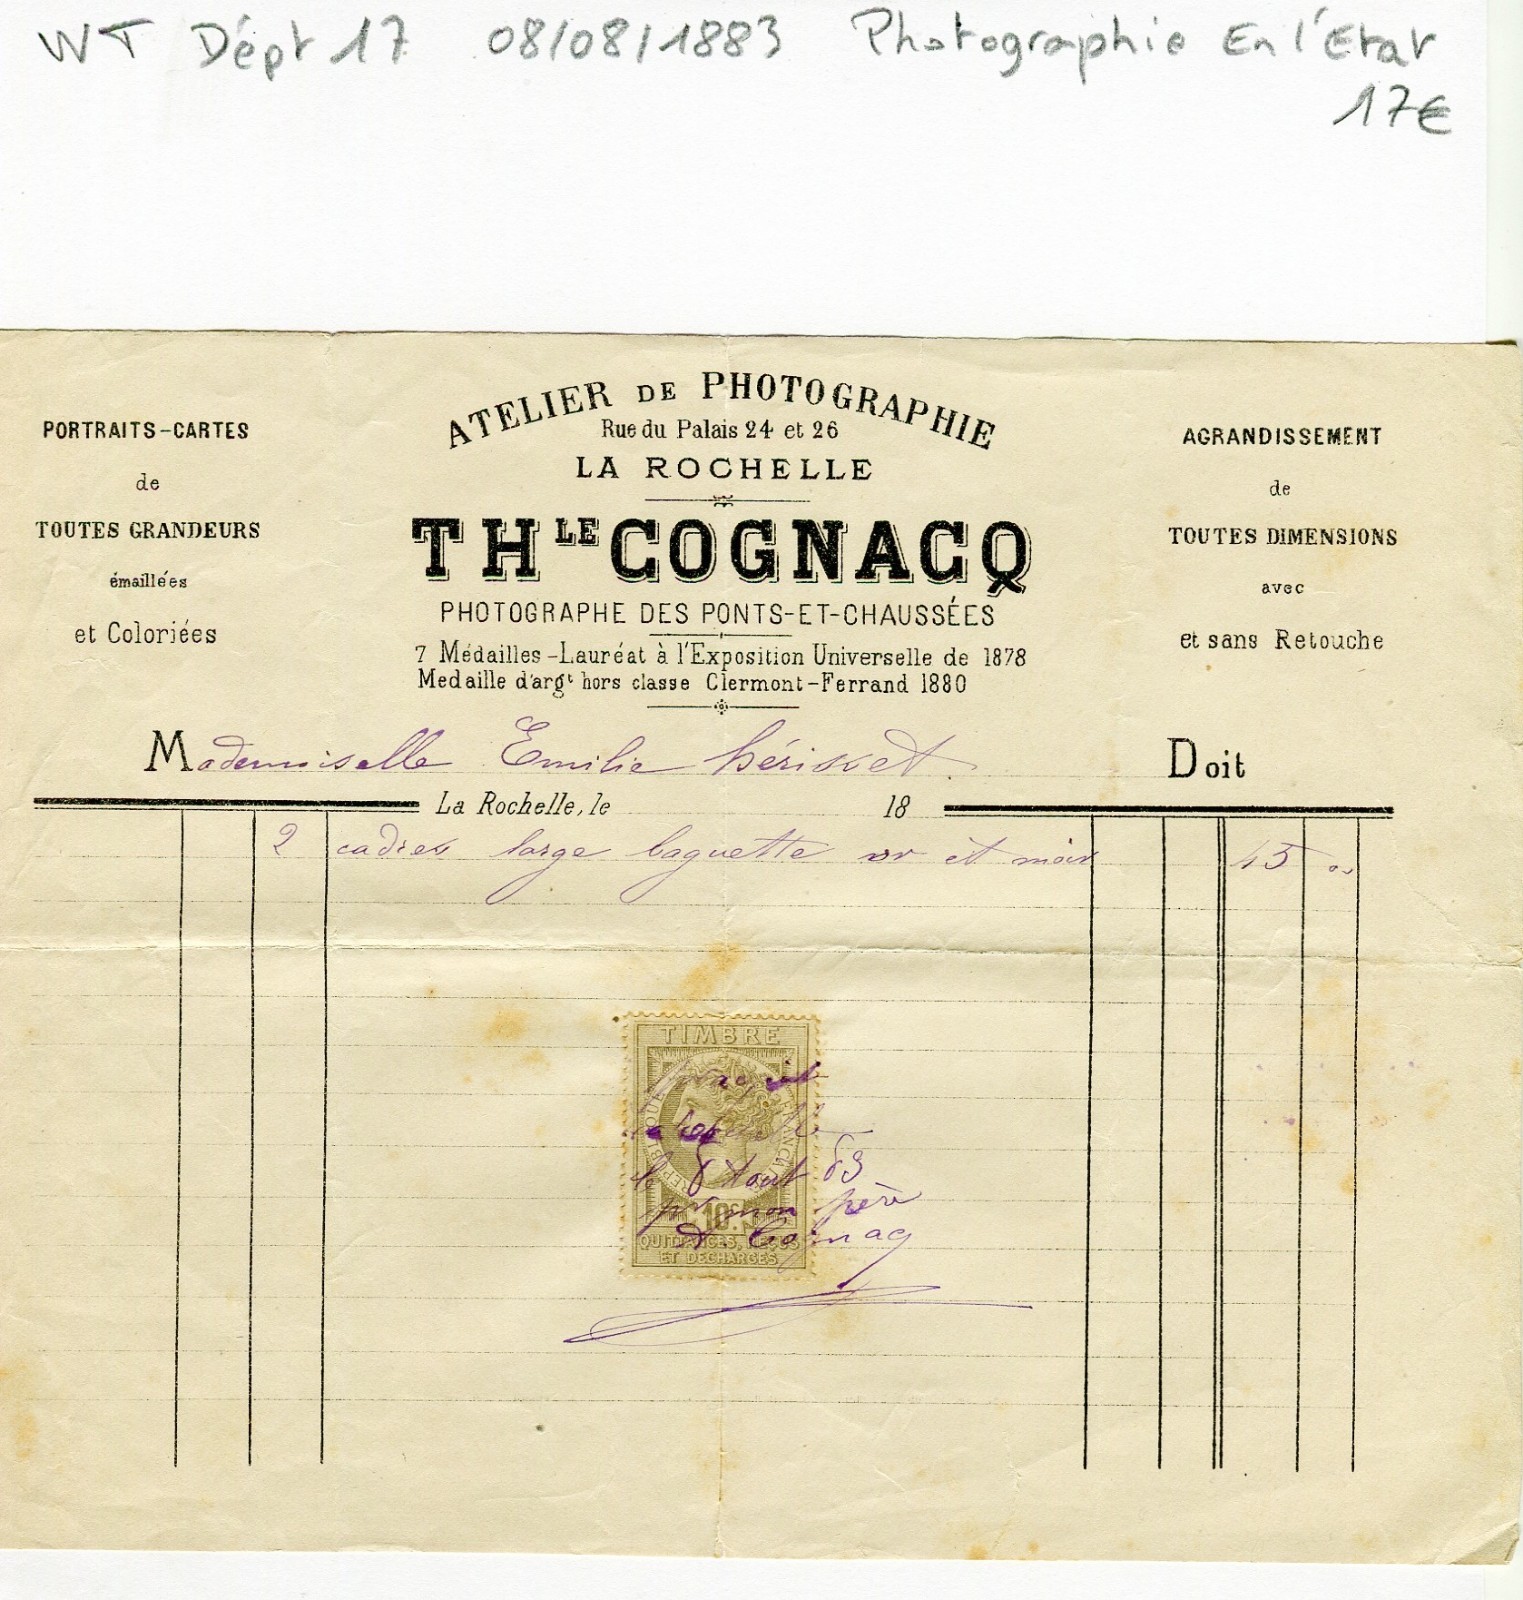 WT Dépt 17 08/08/1883 Photographie En l'Etat
17€
ATELIER DE PHOTOGRAPHIE
Rue du Palais 24 et 26
LA ROCHELLE
TH LE COGNACQ
PHOTOGRAPHE DES PONTS-ET-CHAUSSÉES
7 Médailles - Lauréat à l'Exposition Universelle de 1878
Medaille d'argt hors classe Clermont-Ferrand 1880
PORTRAITS-CARTES
de
TOUTES GRANDEURS
émaillées
et Coloriées
AGRANDISSEMENT
de
TOUTES DIMENSIONS
avec
et sans Retouche
Mademoiselle Emilie Doit
La Rochelle, le 18
2 cadres large baguette or et noir 45 00
TIMBRE
RÉPUBLIQUE FRANÇAISE
10 c.
QUITTANCES, REÇUS
ET DÉCHARGES
le 8 Aout 83
pr mon père
Cognacq